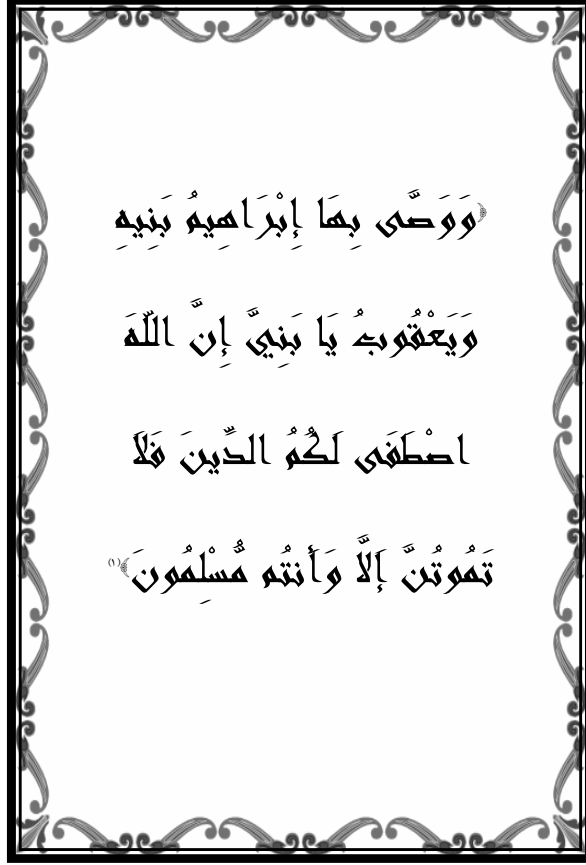 ﴿وَوَصَّى بِهَا إِبْرَاهِيمُ بَنِيهِ
وَيَعْقُوبُ يَا بَنِيَّ إِنَّ اللّهَ
اصْطَفَى لَكُمُ الدِّينَ فَلاَ
تَمُوتُنَّ إَلاَّ وَأَنتُم مُّسْلِمُونَ﴾(١)